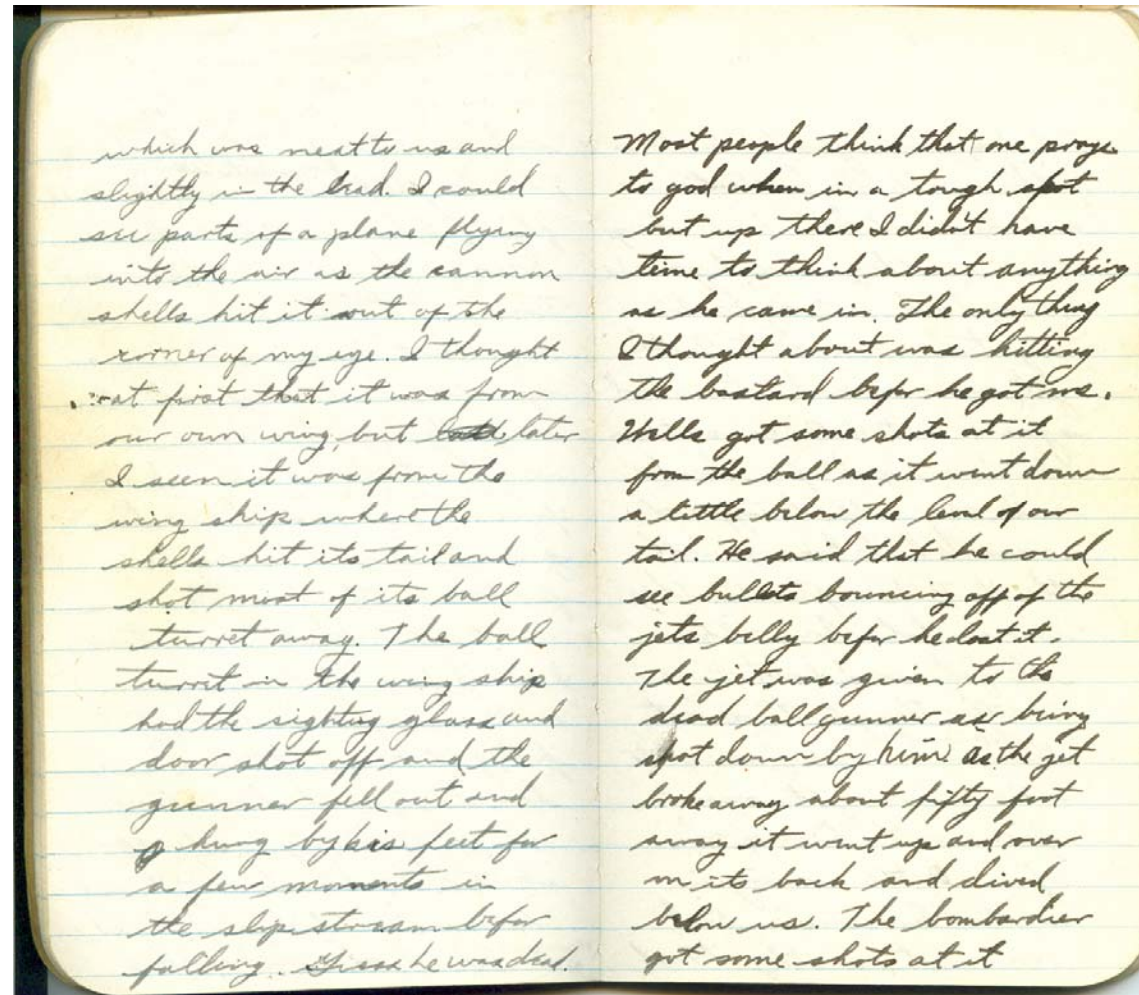 which was next to us and
slightly in the lead. I could
see parts of a plane flying
into the air as the cannon
shells hit it out of the
corner of my eye. I thought
at first that it was from
our own wing, but later
I seen it was from the
wing ship where the
shells hit its tail and
shot most of its ball
turret away. The ball
turret in the wing ship
had the sighting glass and
door shot off and the
gunner fell out and
hung by his feet for
a few moments in
the slip stream befor
falling. Guess he was dead.
Most people think that one prays
to god when in a tough spot
but up there I didn't have
time to think about anything
as he came in. The only thing
I thought about was hitting
the bastard befor he got me.
Wells got some shots at it
from the ball as it went down
a little below the level of our
tail. He said that he could
see bullets bouncing off of the
jets belly befor he lost it.
The jet was given to the
dead ball gunner as being
shot down by him. As the jet
broke away about fifty foot
away it went up and over
on its back and dived
below us. The bombardier
got some shots at it